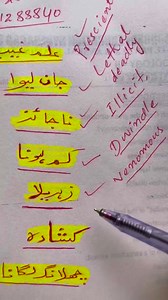 1288840
علمِ غیب Prescient
جان لیوا Lethal deadly
ناجائز Illicit
کم ہونا Dwindle
زہریلا Venomous
کشادہ
چھلانگ لگانا